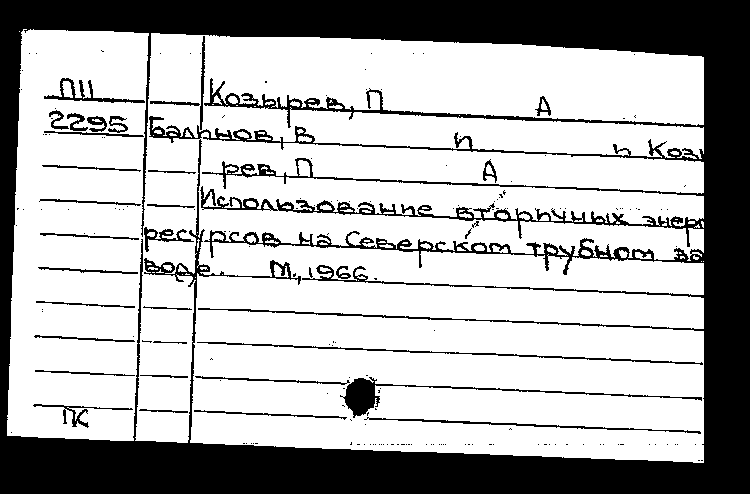 П11 Козырев, П А
2295 Балынов, В П и Козы
рев, П А
Использование вторичных энерг
ресурсов на Северском трубном за
воде. М., 1966.
ПК